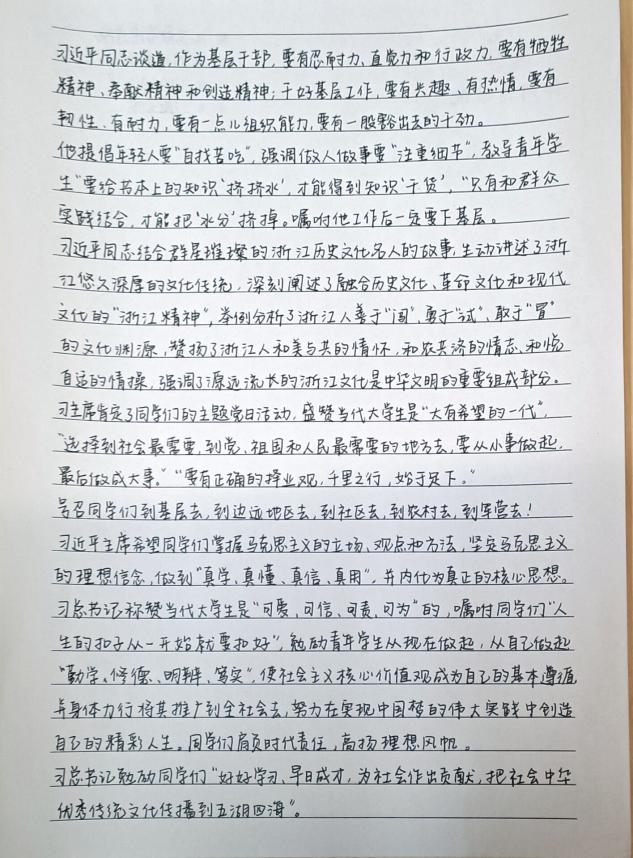 习近平同志谈道，作为基层干部，要有忍耐力、直觉力和行政力，要有牺牲
精神、奉献精神和创造精神；干好基层工作，要有兴趣、有热情，要有
韧性、有耐力，要有一点儿组织能力，要有一股豁出去的干劲。
他提倡年轻人要"自找苦吃"，强调做人做事要"注重细节"，教导青年学
生"要给书本上的知识'挤挤水'，才能得到知识'干货'，"只有和群众
实践结合，才能把'水分'挤掉。嘱咐他工作后一定要下基层。
习近平同志结合群星璀璨的浙江历史文化名人的故事，生动讲述了浙
江悠久深厚的文化传统，深刻阐述了融合历史文化、革命文化和现代
文化的"浙江精神"，举例分析了浙江人善于"闯"、勇于"试"、敢于"冒"
的文化渊源，赞扬了浙江人和美与共的情怀，和衷共济的情志、和悦
自适的情操，强调了源远流长的浙江文化是中华文明的重要组成部分。
习主席肯定了同学们的主题党日活动，盛赞当代大学生是"大有希望的一代"，
"选择到社会最需要，到党、祖国和人民最需要的地方去，要从小事做起，
最后做成大事。""要有正确的择业观，千里之行，始于足下。"
号召同学们到基层去，到边远地区去，到社区去，到农村去，到军营去！
习近平主席希望同学们掌握马克思主义的立场、观点和方法，坚定马克思主义
的理想信念，做到"真学、真懂、真信、真用"，并内化为真正的核心思想。
习总书记称赞当代大学生是"可爱、可信、可贵、可为"的，嘱咐同学们"人
生的扣子从一开始就要扣好"，勉励青年学生从现在做起，从自己做起
"勤学、修德、明辨、笃实"，使社会主义核心价值观成为自己的基本遵循，
并身体力行将其推广到全社会去，努力在实现中国梦的伟大实践中创造
自己的精彩人生。同学们肩负时代责任，高扬理想风帆。
习总书记勉励同学们"好好学习、早日成才，为社会作出贡献，把社会中华
优秀传统文化传播到五湖四海"。